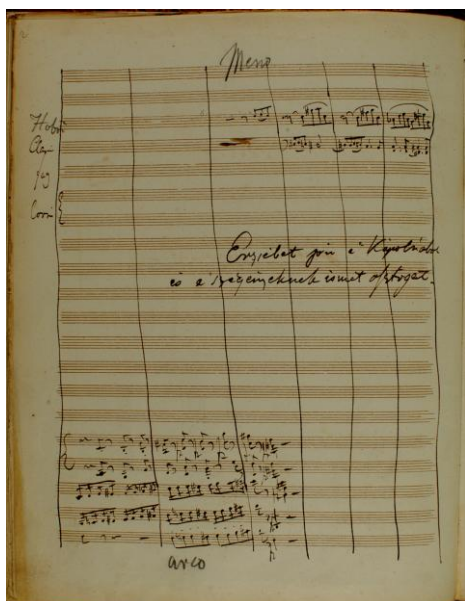 Meno
Hobo
Clar
fag
Corni
Erzsébet jön a Kápolnából
és a szegényeknek ismét osztogat.
arco